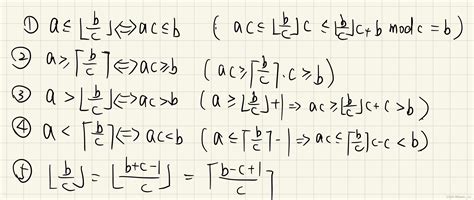 ① a≤⌊b/c⌋⟺ac≤b ( ac≤⌊b/c⌋c≤⌊b/c⌋c+b mod c=b)
② a≥⌈b/c⌉⟺ac≥b (ac≥⌈b/c⌉·c≥b)
③ a>⌊b/c⌋⟺ac>b (a≥⌊b/c⌋+1⇒ac≥⌊b/c⌋c+c>b)
④ a<⌈b/c⌉⟺ac<b (a≤⌈b/c⌉-1⇒ac≤⌈b/c⌉c-c<b)
⑤ ⌊b/c⌋=⌊b+c-1/c⌋=⌈b-c+1/c⌉